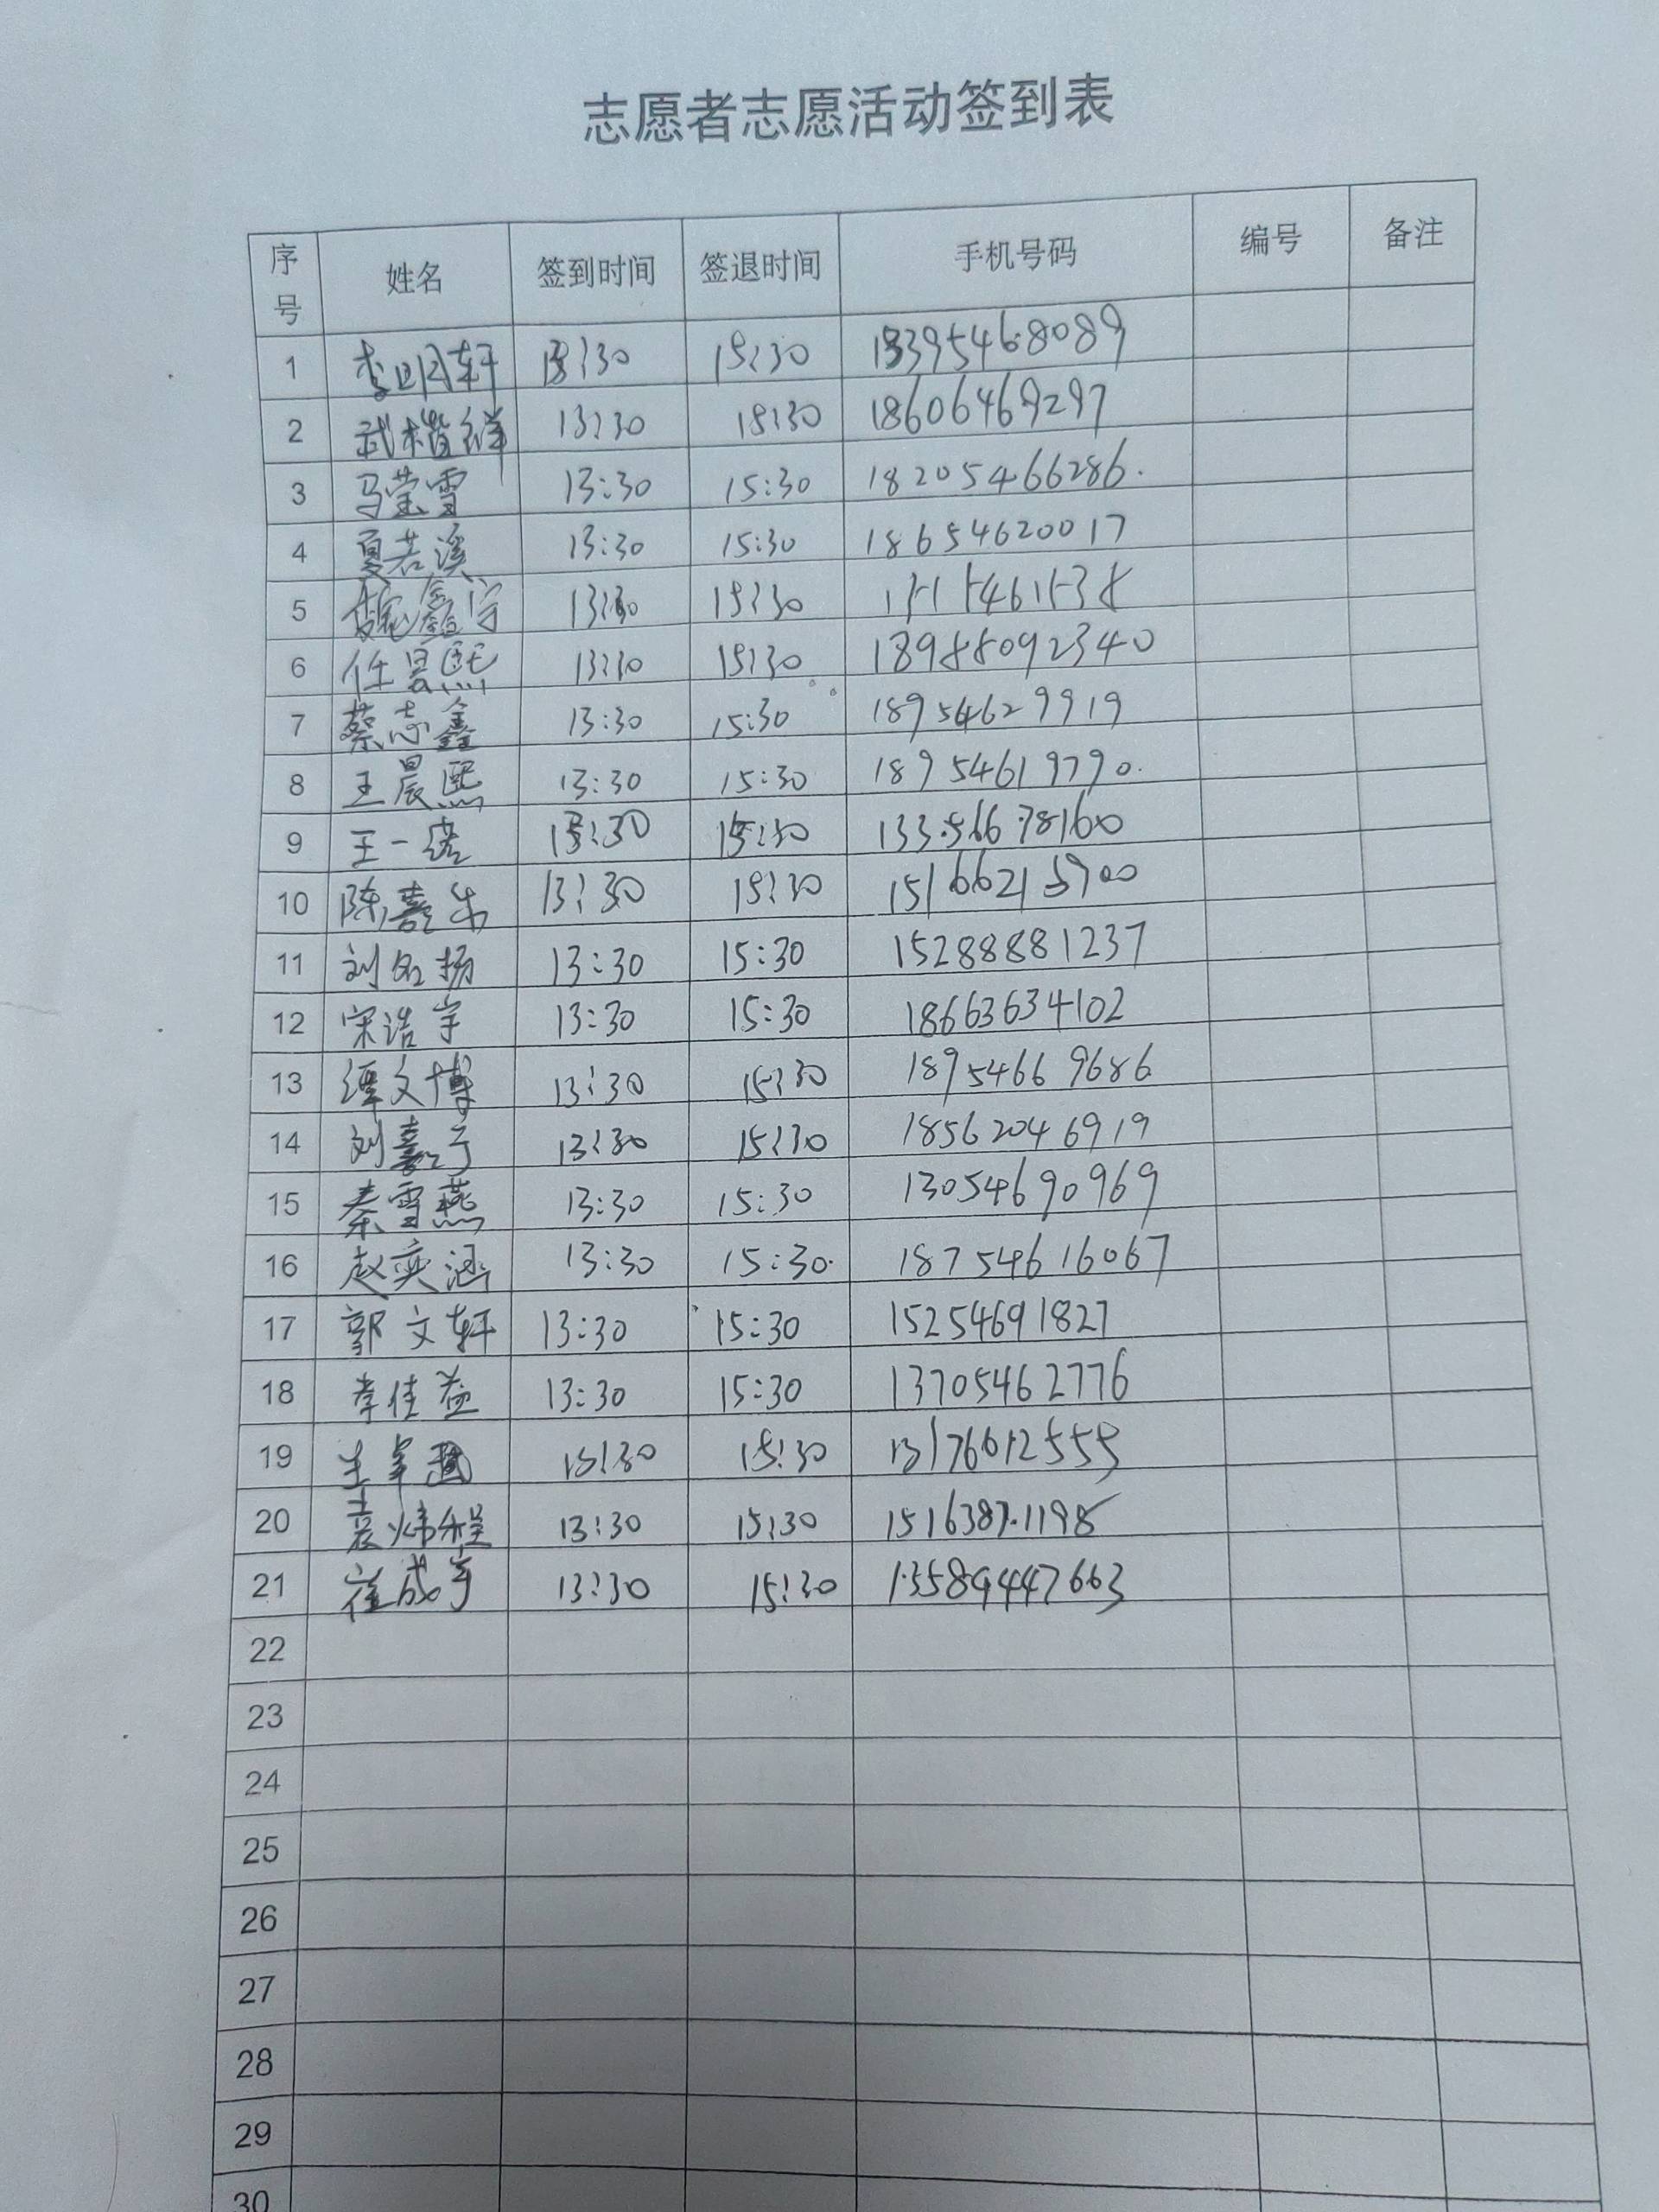 志愿者志愿活动签到表
序号 姓名 签到时间 签退时间 手机号码 编号 备注
1 李明轩 13:30 15:30 18395468089
2 武楷祥 13:30 15:30 18606469297
3 马莹雪 13:30 15:30 18205466286.
4 夏若溪 13:30 15:30 18654620017
5 魏鑫宇 13:30 15:30
6 任昱熙 13:30 15:30 18988092340
7 蔡志鑫 13:30 15:30 18954629919
8 王晨熙 13:30 15:30 18954619790.
9 王一诺 13:30 15:30 13356678160
10 陈嘉乐 13:30 15:30 15166215900
11 刘名扬 13:30 15:30 15288881237
12 宋浩宇 13:30 15:30 18663634102
13 谭文博 13:30 15:30 18954669686
14 刘嘉宁 13:30 15:30 18562046919
15 秦雪燕 13:30 15:30 13054690969
16 赵奕涵 13:30 15:30. 18754616067
17 郭文轩 13:30 15:30 15254691827
18 李佳益 13:30 15:30 13705462776
19 13:30 15:30 13176612555
20 袁炜程 13:30 15:30 15163871198
21 崔成宇 13:30 15:30 13589447663
22
23
24
25
26
27
28
29
30